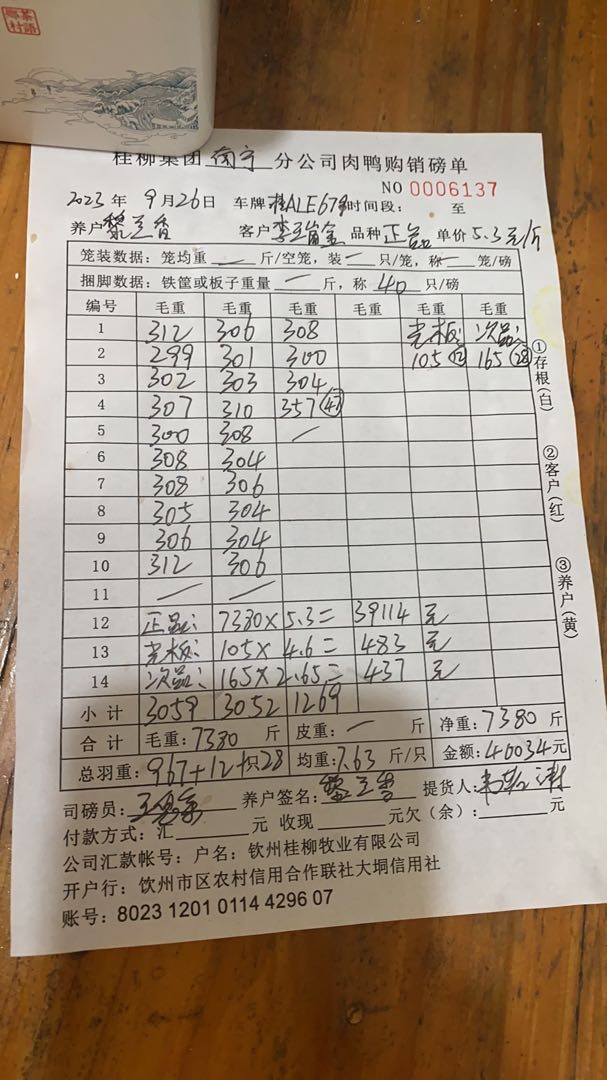 桂柳集团 南宁 分公司肉鸭购销磅单
NO 0006137
2023 年 9 月 26 日 车牌 桂ALE679 时间段： 至
养户 黎兰香 客户 品种 正品 单价 5.3元/斤
笼装数据：笼均重 — 斤/空笼，装 — 只/笼，称 — 笼/磅
捆脚数据：铁筐或板子重量 — 斤，称 40 只/磅
编号 毛重 毛重 毛重 毛重 毛重 毛重
1 312 306 308 光板： 次品：
2 299 301 300 105 (12) 165 (28)
3 302 303 304
4 307 310 357 (47)
5 300 308 —
6 308 304
7 308 306
8 305 304
9 306 304
10 312 306
11 — —
12 正品： 7380 × 5.3 = 39114 元
13 光板： 105 × 4.6 = 483 元
14 次品： 165 × 2.65 = 437 元
小计 3059 3052 1269
合计 毛重：7380 斤 皮重：— 斤 净重：7380 斤
总羽重：967+12+28 只 均重：7.63 斤/只 金额：40034 元
司磅员： 养户签名：黎兰香 提货人：
付款方式：汇 元 收现 元欠（余）： 元
公司汇款帐号：户名：钦州桂柳牧业有限公司
开户行：钦州市区农村信用合作联社大垌信用社
账号：8023 1201 0114 4296 07
①存根(白)
②客户(红)
③养户(黄)